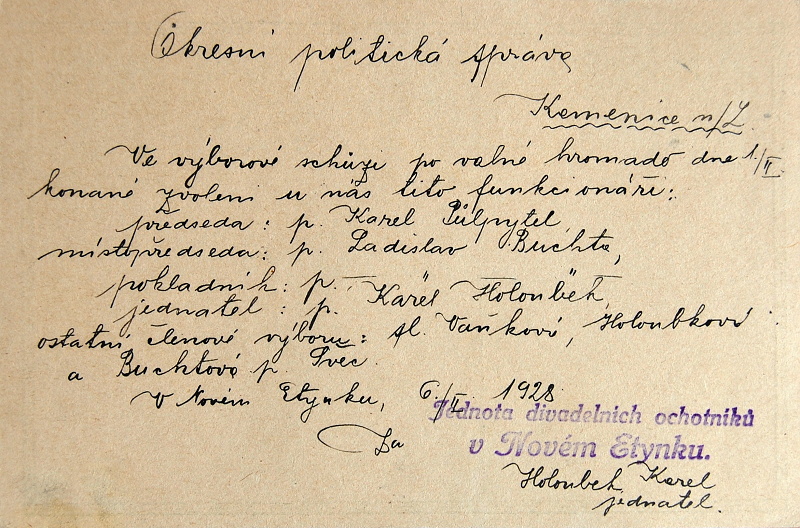 Okresní politická správa
Kamenice n/L.
Ve výborové schůzi po valné hromadě dne 1./II.
konané zvoleni u nás tito funkcionáři:
předseda: p. Karel Půlpytel,
místopředseda: p. Ladislav Buchta,
pokladník: p. —
jednatel: p. Karel Holoubek,
ostatní členové výboru: sl. Vaňková, Holoubková
a Buchtová p. Švec.
V Novém Etynku, 6./II. 1928
Jednota divadelních ochotníků
v Novém Etynku.
Za
Holoubek Karel
jednatel.